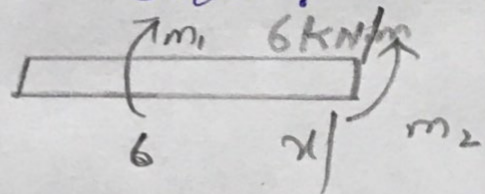 m₁ 6KN/m
6 x m₂